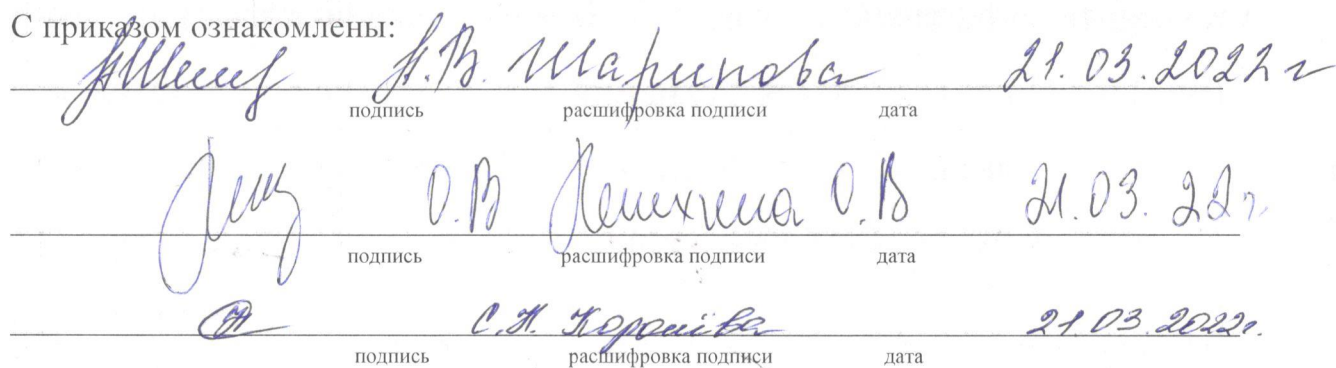 С приказом ознакомлены:
Н.В. Шарипова 21.03.2022 г
подпись расшифровка подписи дата
О.В О.В 21.03.22г
подпись расшифровка подписи дата
С.Н. 21.03.2022г.
подпись расшифровка подписи дата